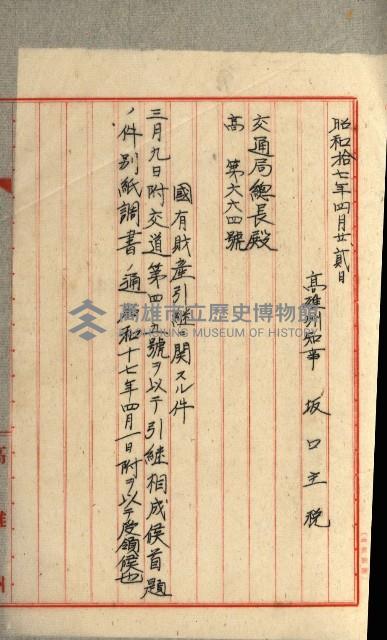 昭和拾七年四月廿貳日
高雄州知事 坂口主税
交通局總長殿
高 第六六四號
國有財產引繼關スル件
三月九日附交道第四 號ヲ以テ引繼相成候首題
ノ件別紙調書ノ通昭和十七年四月一日附ヲ以テ受領候也
高雄市立歷史博物館
KAOHSIUNG MUSEUM OF HISTORY
高雄州